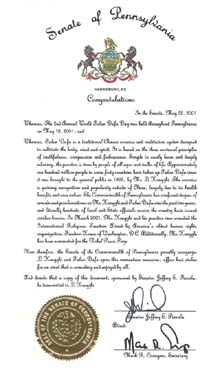 Senate of Pennsylvania
HARRISBURG, PA
Congratulations
In the Senate, May 22, 2001
Whereas, The 2nd Annual World Falun Dafa Day was held throughout Pennsylvania
on May 13, 2001; and
Whereas, Falun Dafa is a traditional Chinese exercise and meditation system designed
to cultivate the body, mind and spirit. It is based on the three universal principles
of truthfulness, compassion and forbearance. Simple to easily learn and deeply
relaxing, the practice is done by people of all ages and walks of life. Approximately
one hundred million people in some forty countries have taken up Falun Dafa since
it was brought to the general public in 1992, by Mr. Li Hongzhi. The exercise
is gaining recognition and popularity outside of China, largely due to its health
benefits and core values. The Commonwealth of Pennsylvania has conferred dozens of
awards and proclamations on Mr. Hongzhi and Falun Dafa over the past two years,
and literally hundreds of local and State officials across the country have issued
similar honors. In March 2001, Mr. Hongzhi and his practice were awarded the
International Religious Freedom Award by America's oldest human rights
organization, Freedom House of Washington, DC. Additionally, Mr. Hongzhi
has been nominated for the Nobel Peace Prize.
Now therefore, the Senate of the Commonwealth of Pennsylvania proudly recognizes
Li Hongzhi and Falun Dafa upon this momentous occasion; offers best wishes
for an event that is rewarding and enjoyed by all;
And directs that a copy of this document, sponsored by Senator Jeffrey E. Piccola,
be transmitted to Li Hongzhi.
Senator Jeffrey E. Piccola
Attest:
Mark R. Corrigan, Secretary